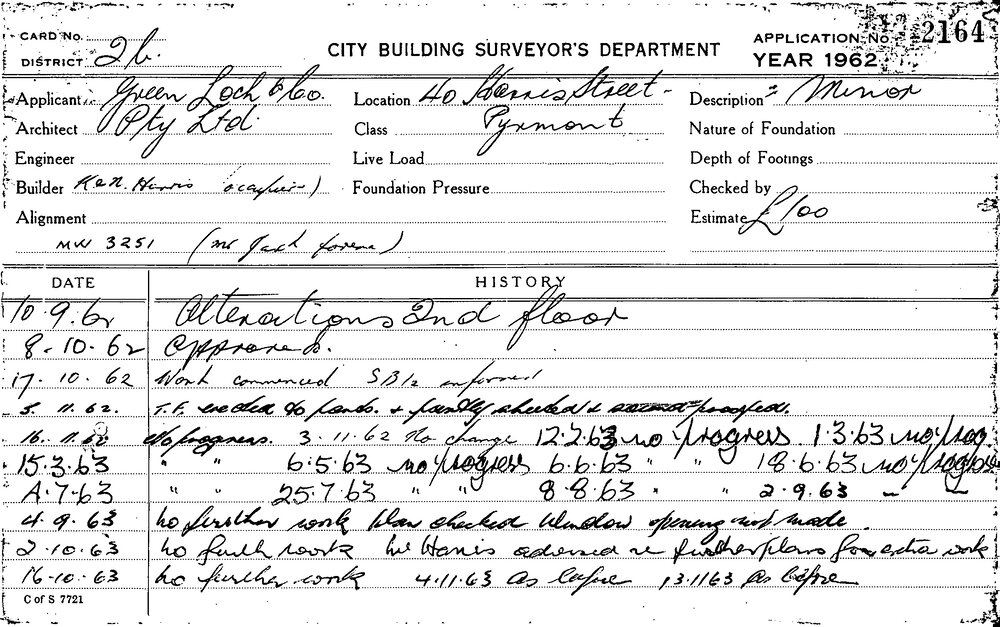 CARD No.
DISTRICT 2b.
CITY BUILDING SURVEYOR'S DEPARTMENT
APPLICATION No. 2164
YEAR 1962
Applicant Green Loch & Co. Location 40 Harris Street - Description Minor
Architect Pty Ltd. Class Pyrmont Nature of Foundation
Engineer Live Load Depth of Footings
Builder Ken. Harris occupier) Foundation Pressure Checked by
Alignment Estimate £100
MW 3251 (Mr
DATE HISTORY
10.9.62 Alterations 2nd floor
8.10.62 Approved.
17.10.62 Work commenced informed
5.11.62. T.F. & partly sheeted &
16.11. No progress. 3.11.62 No change 12.2.63 no progress. 1.3.63 no prog
15.3.63 " " 6.5.63 no progress 6.6.63 " " 18.6.63 no progress
4.7.63 " " 25.7.63 " " 8.8.63 " " 2.9.63 " "
4.9.63 No further work Plan checked Window opening not made.
2.10.63 No further work Mr Harris advised re further plans for extra work
16.10.63 No further work 4.11.63 As before 13.11.63 As before
C of S 7721